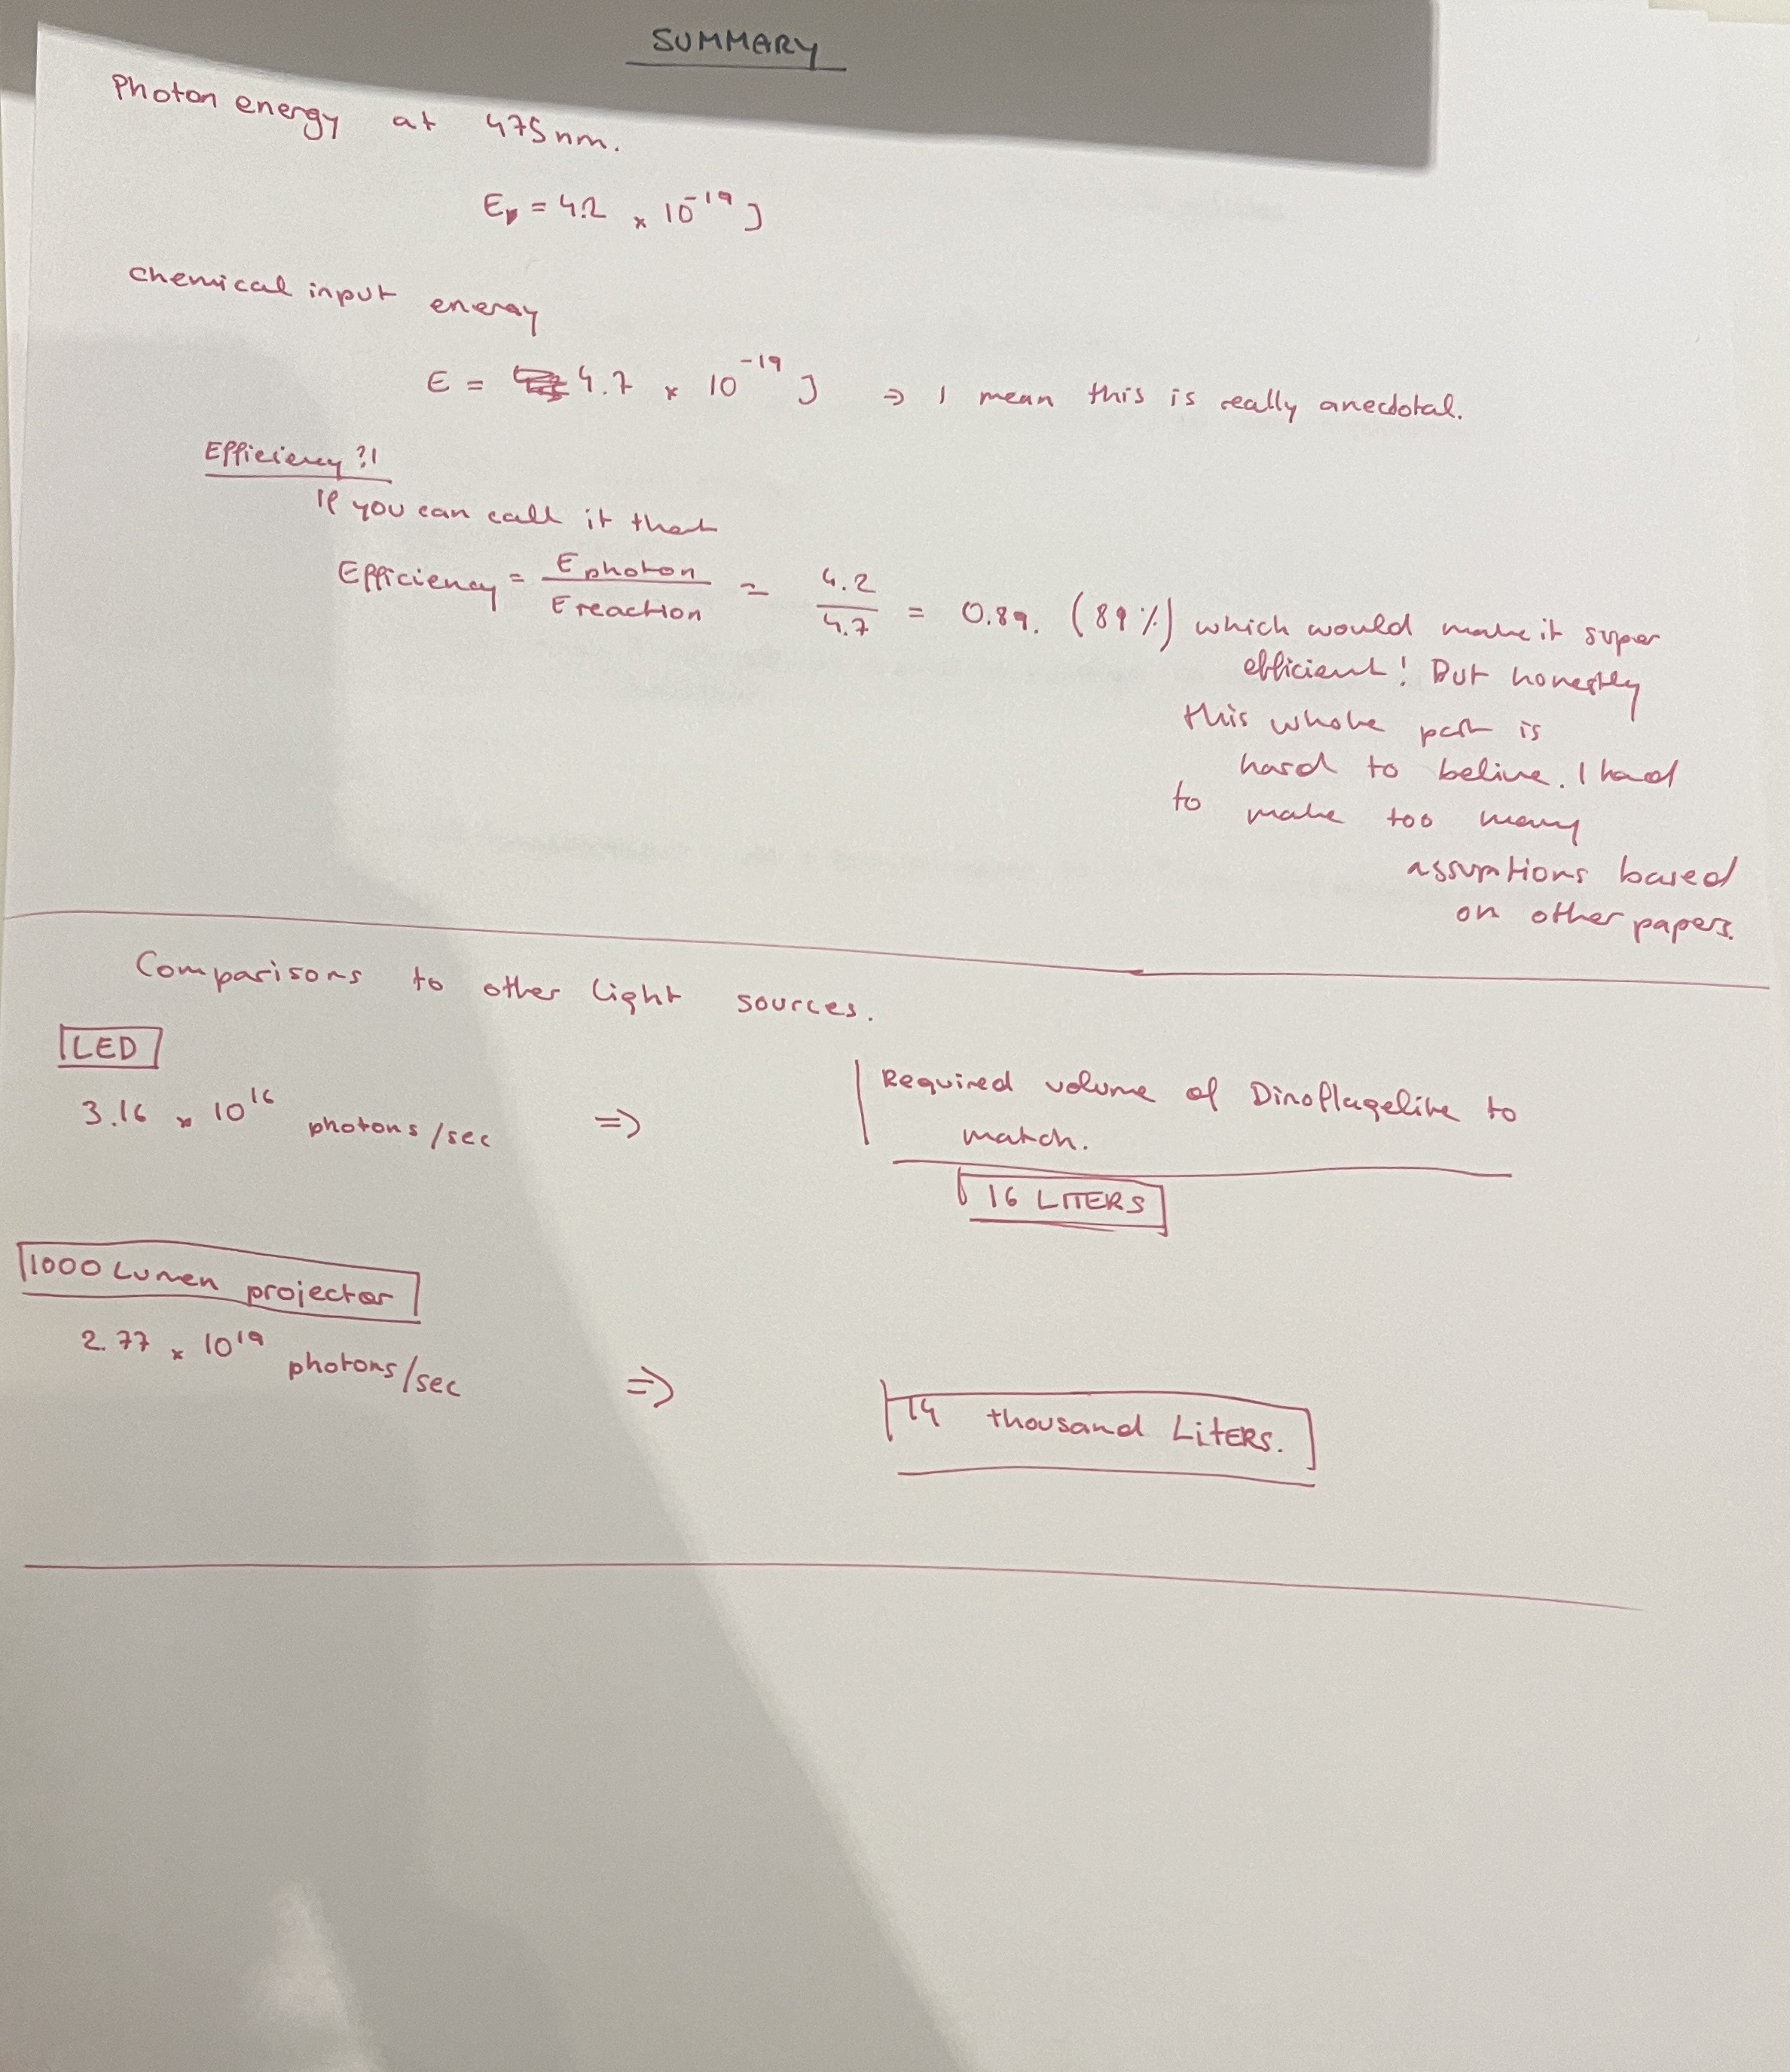 SUMMARY
Photon energy at 475nm.
Eᵧ = 4.2 × 10⁻¹⁹ J
Chemical input energy
E = 4.7 × 10⁻¹⁹ J ⇒ I mean this is really anecdotal.
Efficiency?!
If you can call it that
Efficiency = E photon / E reaction = 4.2 / 4.7 = 0.89. (89%) which would make it super
efficient! But honestly
this whole part is
hard to belive. I had
to make too many
assumtions based
on other papers.
Comparisons to other light sources.
LED
3.16 × 10¹⁶ photons/sec ⇒
Required volume of Dinoflagelite to
match.
16 LITERS
1000 Lumen projector
2.77 × 10¹⁹ photons/sec ⇒
14 thousand LiTERS.